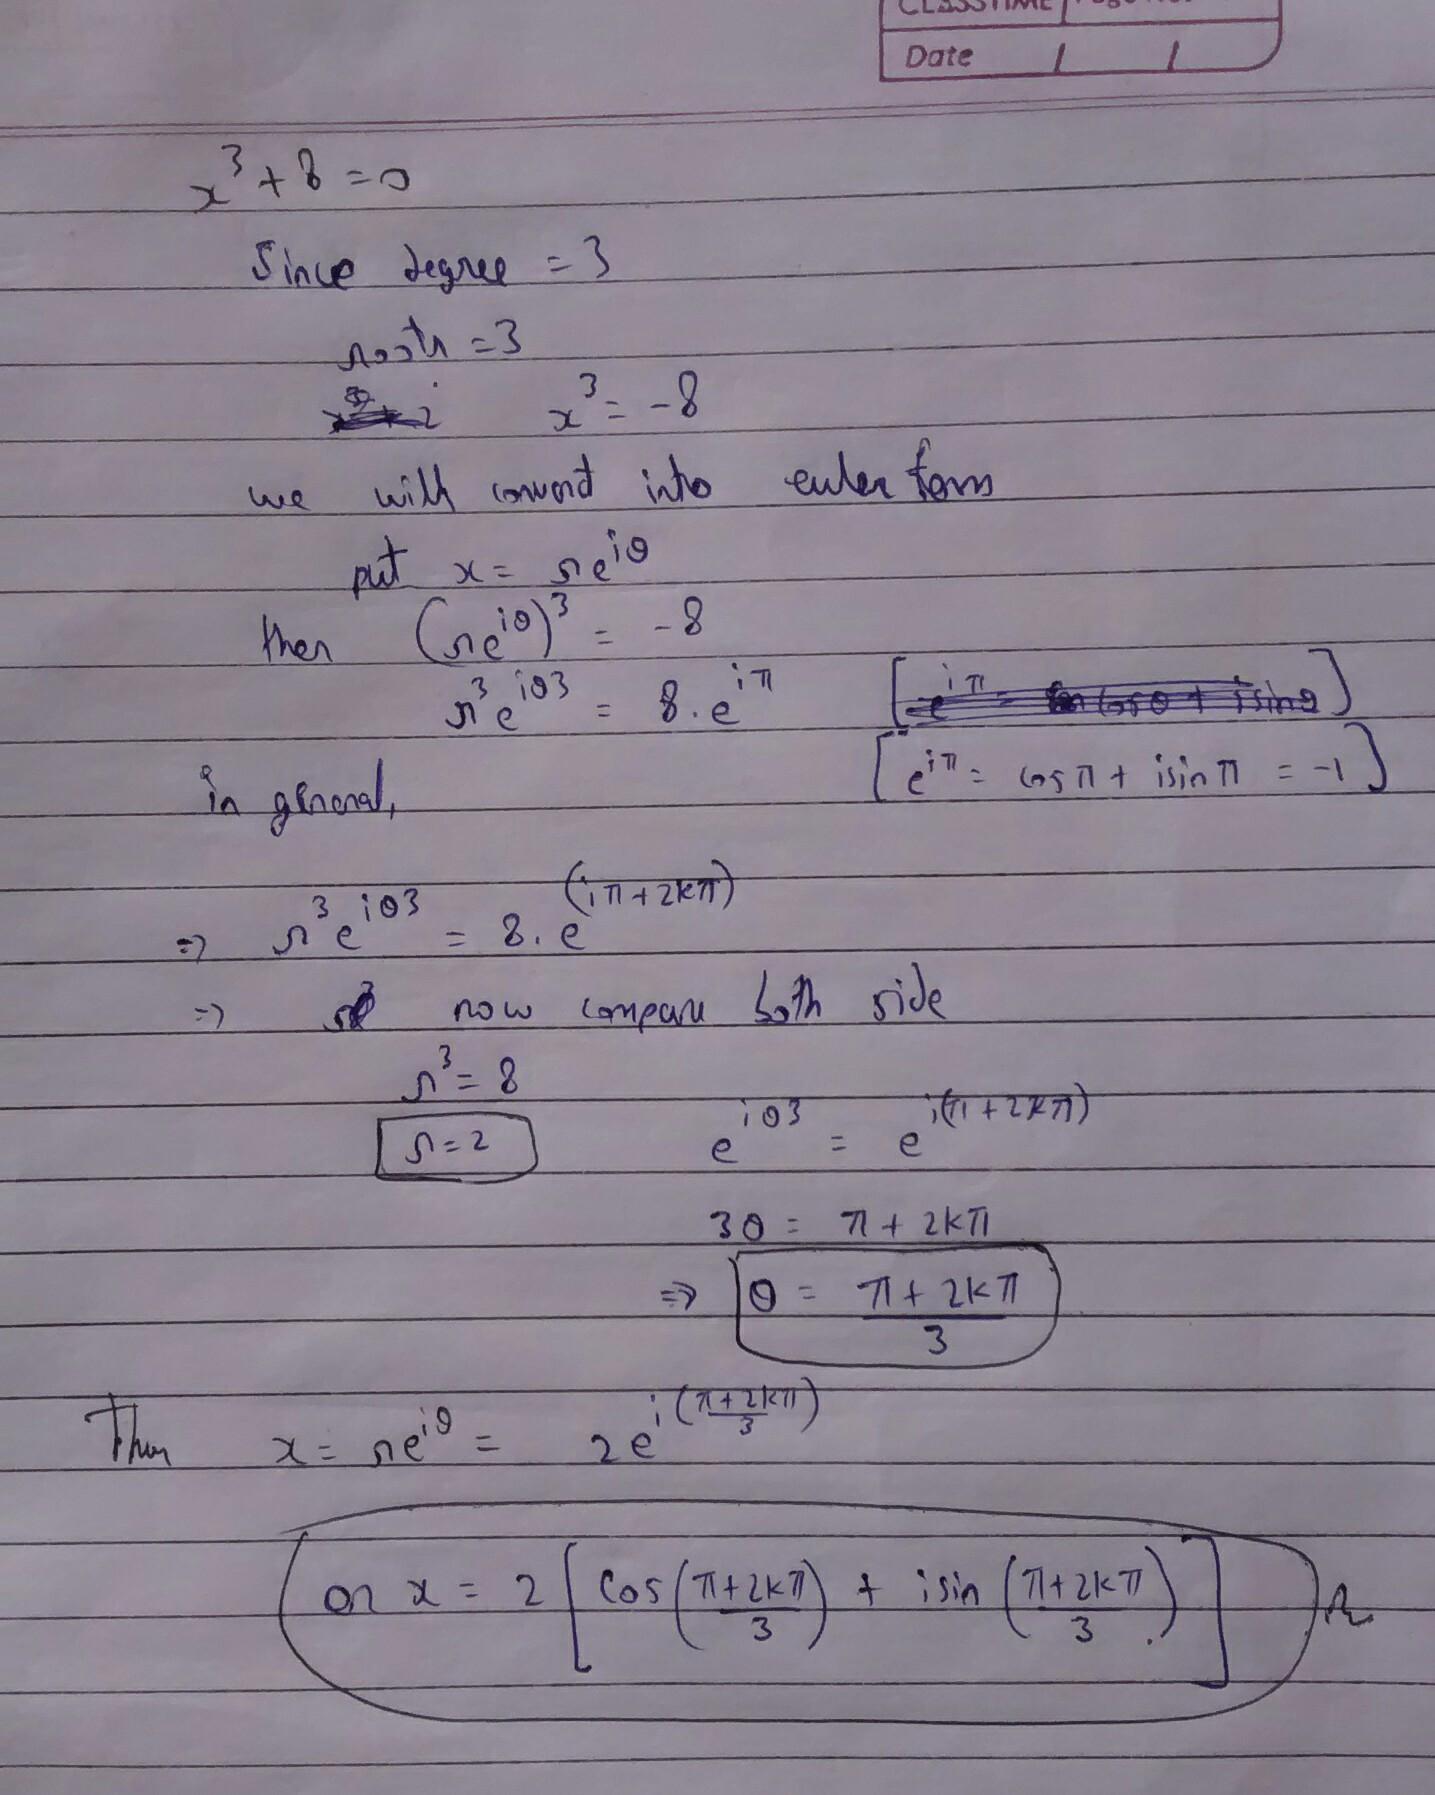 Date / /
x³ + 8 = 0
Since degree = 3
roots = 3
x³ = -8
we will convert into euler form
put x = re^{iθ}
then (re^{iθ})³ = -8
r³e^{iθ3} = 8.e^{iπ}
[e^{iπ} = cosπ + isinπ = -1]
in general,
=> r³e^{iθ3} = 8.e^{(iπ+2kπ)}
=> now compare both side
r³ = 8
r = 2
e^{iθ3} = e^{i(π+2kπ)}
3θ = π + 2kπ
=> θ = (π + 2kπ)/3
Then x = re^{iθ} = 2e^{i((π+2kπ)/3)}
or x = 2[cos((π+2kπ)/3) + isin((π+2kπ)/3)]